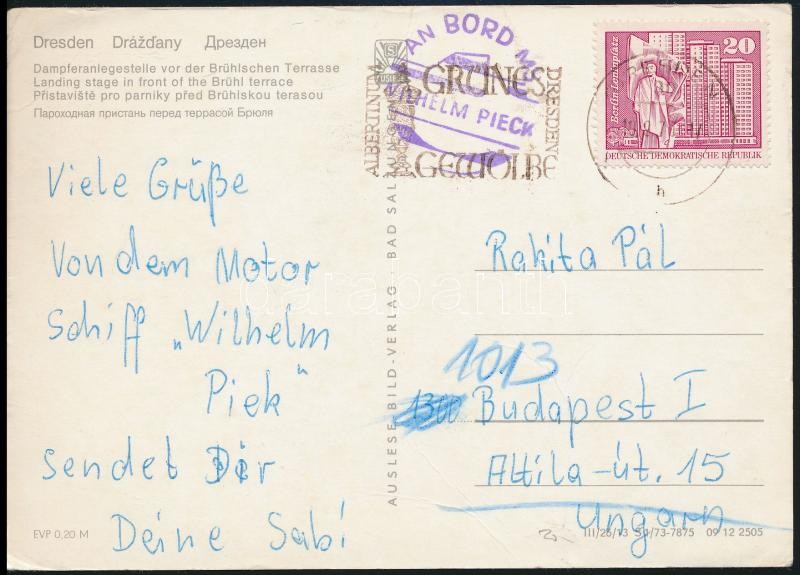 Dresden Drážďany Дрезден
Dampferanlegestelle vor der Brühlschen Terrasse
Landing stage in front of the Brühl terrace
Přístaviště pro parníky před Brühlskou terasou
Пароходная пристань перед террасой Брюля
Viele Grüße
Von dem Motor
Schiff „Wilhelm
Piek"
sendet Dir
Deine Sabi
EVP 0,20 M
AUSLESE-BILD-VERLAG · BAD SALZUNGEN
AN BORD MS
WILHELM PIECK
ALBERTINUM
GRÜNES
GEWÖLBE
DRESDEN
20
Berlin-Leninplatz
DEUTSCHE DEMOKRATISCHE REPUBLIK
h
Rakita Pál
1013
1300 Budapest I
Attila-út. 15
Ungarn
III/26/13 S 1/73-7875 09 12 2505
darabanth